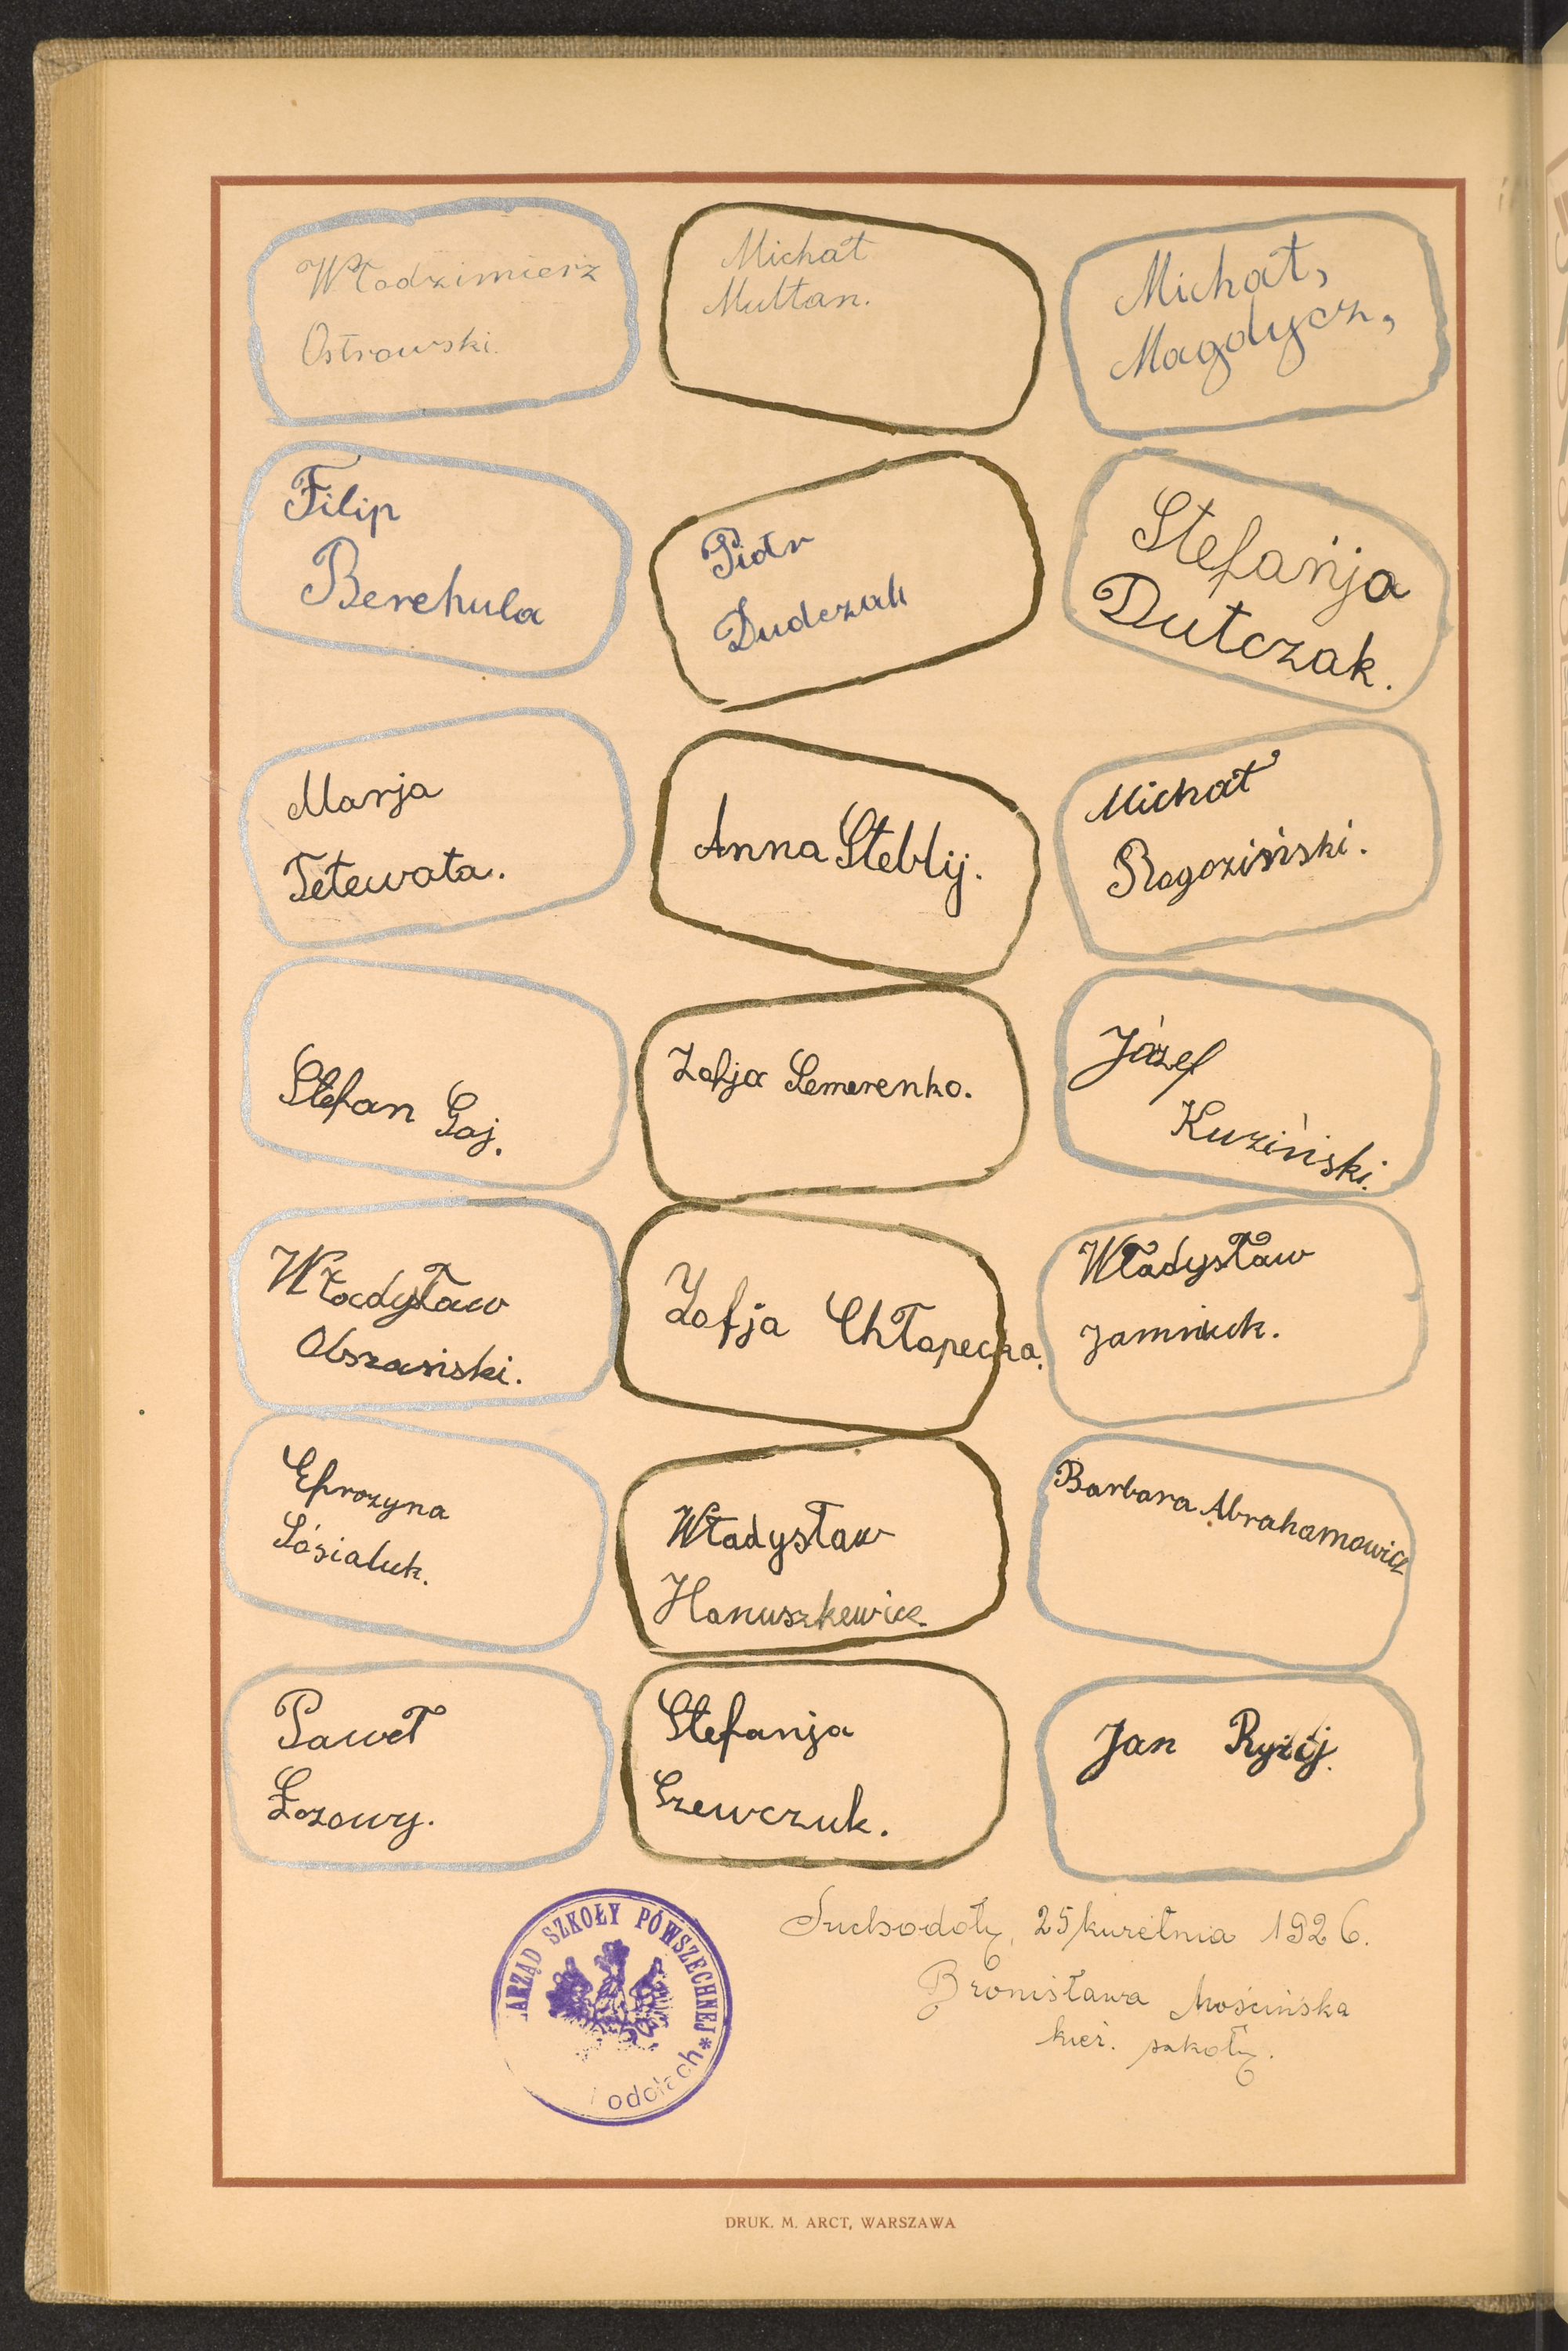 Włodzimierz
Ostrowski.
Michał
Multan.
Michał,
Magdycz,
Filip
Berehula
Piotr
Dudczak
Stefańja
Dutczak.
Marja
Tetewata.
Anna Steblij.
Michał
Rogoziński.
Stefan Gaj.
Zofja Semerenko.
Józef
Kuziński.
Władysław
Obszański.
Zofja Chłapecka.
Władysław
Jamniuk.
Efrozyna
Łósialuk.
Władysław
Hanuszkewicz.
Barbara Abrahamowicz
Paweł
Łozowy.
Stefanja
Szewczuk.
Jan Ryżij.
ARZĄD SZKOŁY POWSZECHNEJ *
odołach
Suchodoły, 25 kwietnia 1926.
Bronisława Mościńska
kier. szkoły.
DRUK. M. ARCT, WARSZAWA